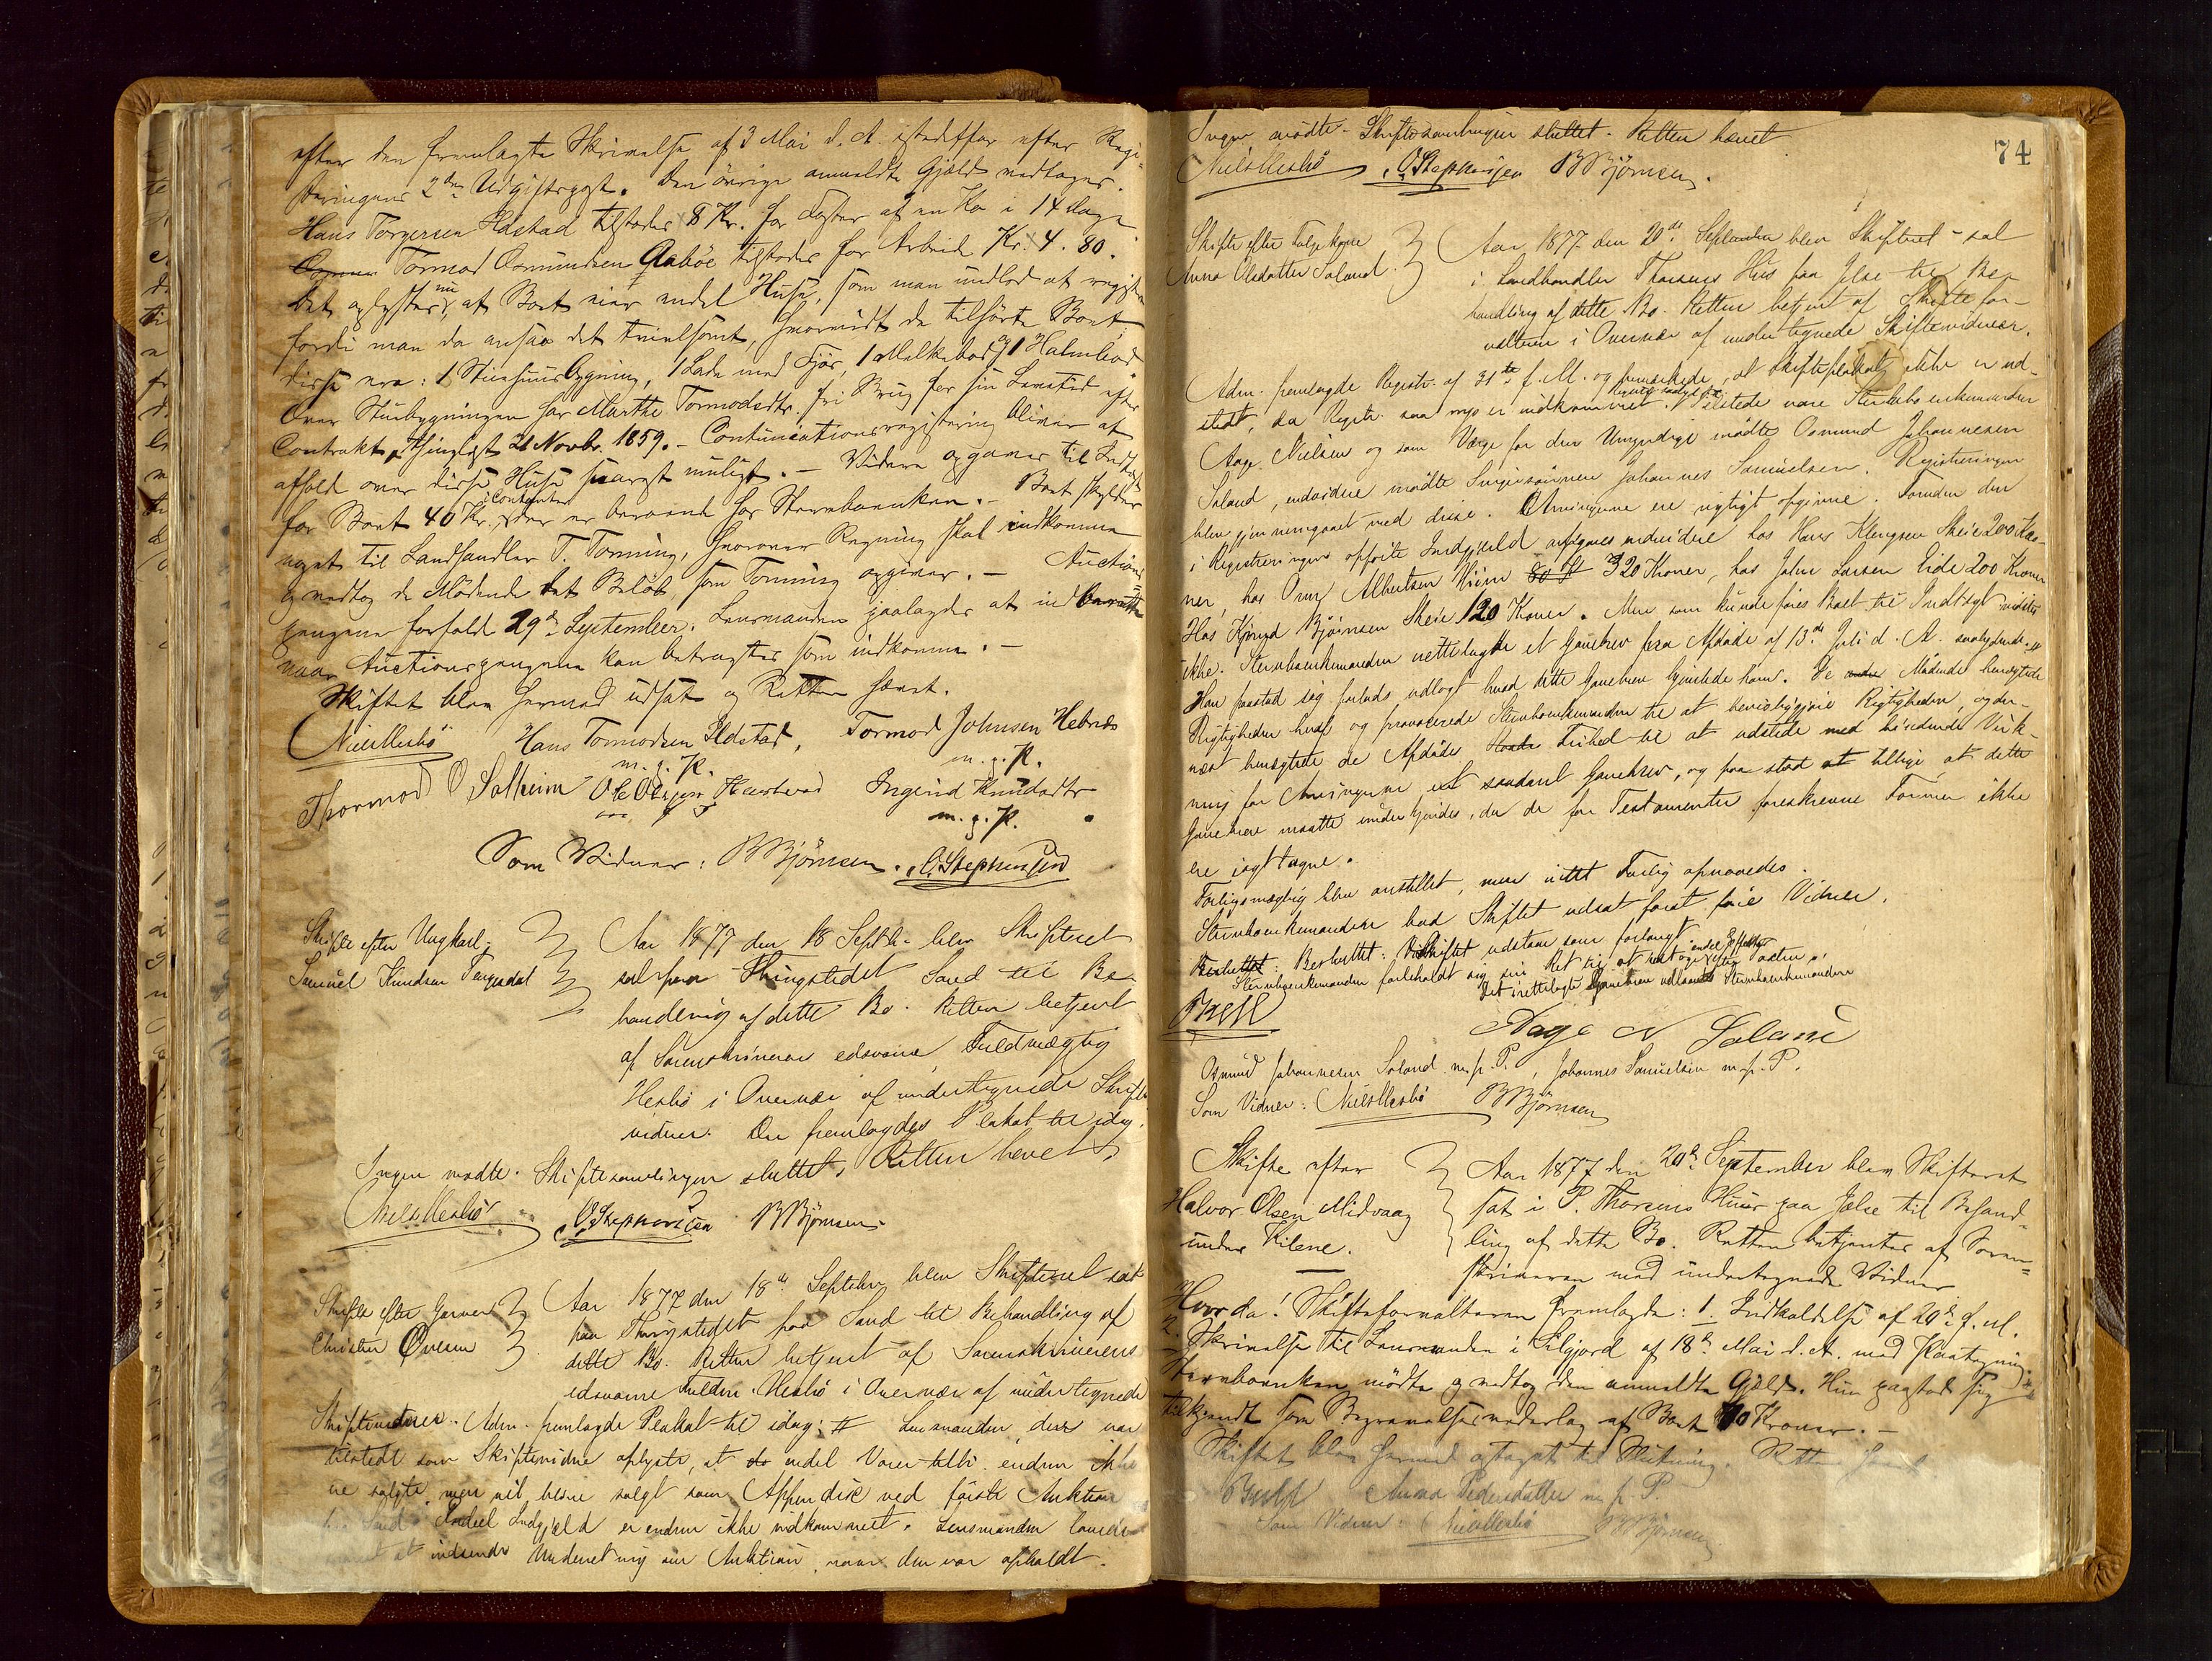 efter den fremlagte Skrivelse af 3 Mai d. A. istedetfor efter Regi-
streringens 2den Udgiftspost. Den övrige anmeldte Gjæld vedtoges.
Hans Torgersen Ilstad tilstodes 8 Kr. for Foster af en Ko i 14 Dage
Tormod Osmundsen Aaböe tilstodes for Arbeide Kr. 4. 80.
Det oplystes nu, at Boet eier endel Huse, som man undlod at regist
fordi man da ansaa det tvivlsomt, hvorvidt de tilhörte Boet
disse ere: 1 Stuehuusbygning, 1 Lade med Fjös, 1 Melkebod og 1 Halmbod
Over Stuebygningen har Marthe Tormodsdtr. fri Brug for sin Levetid efter
Contrakt, thinglæst 21 Novbr. 1859. - Continuationsregistrering bliver at
afhold over disse Huse snarest muligt. - Videre opgaves til Indtægt
for Boet 40 Kr. i Contanter, der er beroende hos Stervboenken. - Boet skylder
noget til Landhandler T. Tonning, hvorover Regning skal indkomme
og vedtog de Mödende det Belöb, som Tonning opgiver. - Auctions
pengene forfald 29de September. Lensmanden paalagdes at indberette
naar Auctionspengene kan betragtes som indkomne. -
Skiftet blev hermed udsat og Retten hævet.
Niels Hesbö Hans Tormodsen Ilstad, Tormod Johnsen Hebnes
m. p. P. m. p. P.
Thormod O Solheim Ole Olsen Ingerid Knudsdtr
m. p. P.
Som Vidner: B Björnsen. O. Stephansen
Skifte efter Ungkarl
Samuel Knudsen Tengesdal
Aar 1877 den 18 Septbr. blev Skifteret
sat paa Thingstedet Sand til Be-
handling af dette Bo. Retten betjent
af Sorenskriverens edsvorne Fuldmægtig
Hesbö i Overvær af undertegnede Skifte
vidner. Der fremlagdes Plakat til idag.
Ingen mödte. Skiftesamlingen sluttet, Retten hævet
Niels Hesbö O. Stephansen B Björnsen
Skifte efter Garver
Christen Ovesen
Aar 1877 den 18de Septbr blev Skifteret sat
paa Thingstedet paa Sand til Behandling af
dette Bo. Retten betjent af Sorenskriverens
edsvorne Fuldm. Hesbö i Overvær af undertegnede
Skiftevidner. Adm. fremlagde Plakat til idag. Lensmanden, der var
tilstede som Skiftevidne oplyste, at endel Varer endnu ikke
ere solgte, men vil blive solgt som Appendix ved förste Auktion
Sand. Endeel Indgjæld er endnu ikke indkommet. Lensmanden lovede
at indsende Underretning om Auktion, naar den var afholdt.
74
Ingen mödte - Skiftesamlingen sluttet - Retten hævet
Niels Hesbö O. Stephansen B Björnsen.
Skifte efter Fölgekone
Anna Olsdatter Soland.
Aar 1877 den 20de September blev Skifteret - sat
i Landhandler Thorsens Hus paa Jelse til Be-
handling af dette Bo. Retten betjent af Skiftefor-
valteren i Overvær af undertegnede Skiftevidner.
Adm. fremlagde Registr. af 31te f. M. og bemærkede, at Skifteplakat ikke er ud-
stedt, da Registr. saa nys er indkommet. Tilstede vare Stervboenkemanden
Aage Nielsen og som Værge for den Umyndige mödte Osmund Johannesen
Soland, endvidere mödte Svigersönnen Johannes Samuelsen. Registreringen
blev gjennemgaaet med disse. Arvingerne ere rigtigt opgivne. Foruden den
i Registreringen opförte Indgjæld opgaves endvidere hos Hans Klengsen Skeie 200 Kro-
ner, hos Albertsen 320 Kroner, hos John Larsen Eide 200 Kroner
Hos Björnsen Skeie 120 Kroner. Mere som kunde föres Boet til Indtægt vidstes
ikke. Stervboenkemanden irettelagde et Gavebrev fra Afdöde af 13de Juli d. A. saalydende
Han paastod sig forlods udlagt hvad dette Gavebrev hjemlede ham. De Mödende benegtede
Rigtigheden heraf og provocerede Stervboenkemanden til at bevisliggjöre Rigtigheden, og der-
næst benegtede de Afdödes Frihed til at udstede med bindende Virk-
ning for Arvingerne et saadant Gavebrev, og paastod tillige at dette
Gavebrev maatte underkjendes, da de for Testamenter foreskrevne Former ikke
ere iagttagne.
Forligsmægling blev anstillet, men intet Forlig opnaaedes.
Stervboenkemanden bad Skiftet udsat forat före Vidner.
Besluttet: Skiftet udstaar som forlangt
Stervboenkemanden forbeholdt sig sin Ret til at
Det irettelagte Gavebrev udlaantes Stervboenkemanden
Aage N Soland
Osmund Johannesen Soland m. p. P., Johannes Samuelsen m. p. P.
Som Vidner: Niels Hesbö B Björnsen
Skifte efter
Halvor Olsen Midvaag
under Kilene.
Aar 1877 den 20de September blev Skifteret
sat i P. Thorsens Huus paa Jelse til Behand-
ling af dette Bo. Retten betjentes af Soren-
skriveren med undertegnede Vidner
Hvor da! Skifteforvalteren fremlagde: 1. Indkaldelse af 20de f. M.
2. Skrivelse til Lensmanden i af 18de Mai d. A. med Paategning.
Stervboenken mödte og vedtog den anmeldte Gjæld. Hun paastod sig
tilkjendt som Begravelsesvederlag af Boet 70 Kroner. -
Skiftet blev hermed optaget til Slutning. Retten hævet
Anna Pedersdatter m. p. P.
Som Vidner: Niels Hesbö B Björnsen